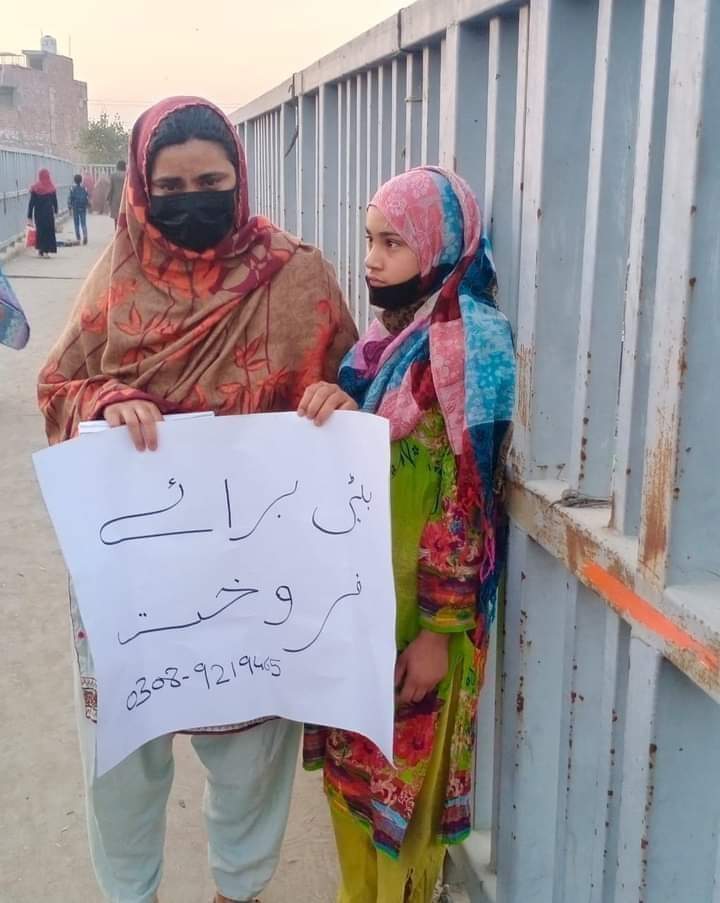 بیٹی برائے
فروخت
0308-9219465